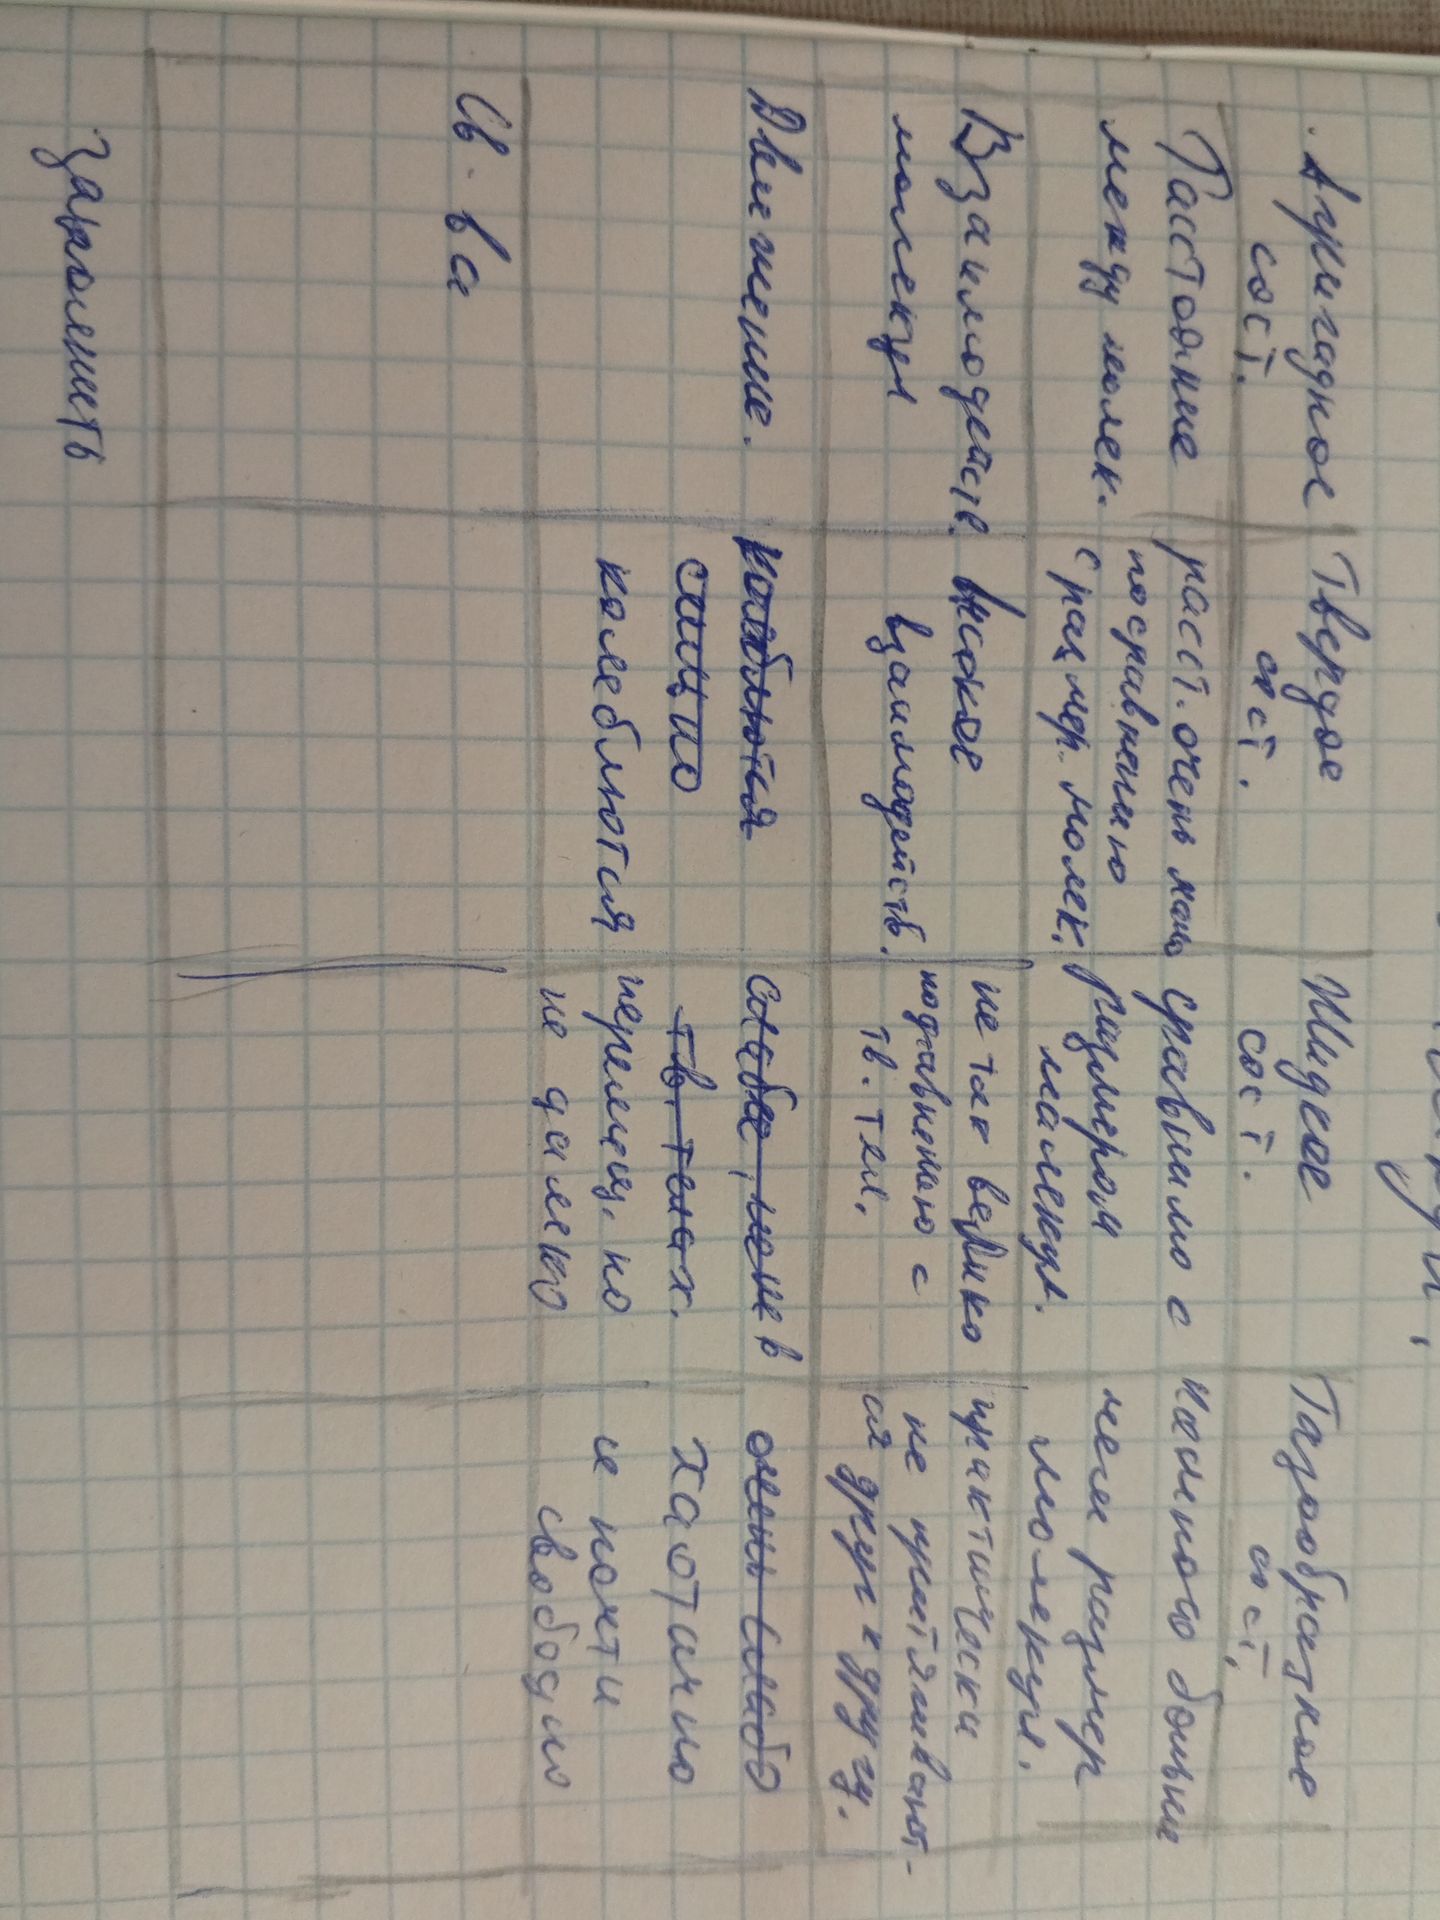 Агригадное
сост.
Твердое
сост.
Жидкое
сост.
Газообразное
сост.
Расстояние
между молек.
расст. очень мало
по сравнению
с размер. молек.
сравнимо с
размером
молекул.
намного больше
чем размер
молекул.
Взаимодейств.
молекул
высокое
взаимодейств.
не так велико
по равнению с
тв. тел.
практически
не притягивают-
ся друг к другу.
Движение.
колеблются
сильно
колеблются
слабее, чем в
тв. телах.
перемещ. но
не далеко
очень слабо
хаотично
и почти
свободно
Св. ва
Заполнить